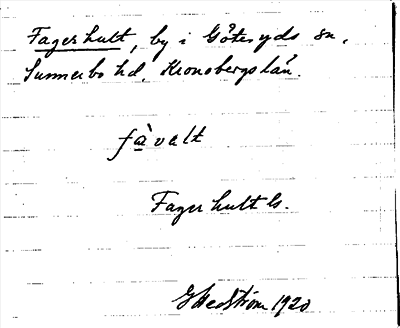 Fagerhult, by i Göteryds sn,
Sunnerbo hd, Kronobergs län.
fàvelt
Fagerhult ls.
G Hedström 1920